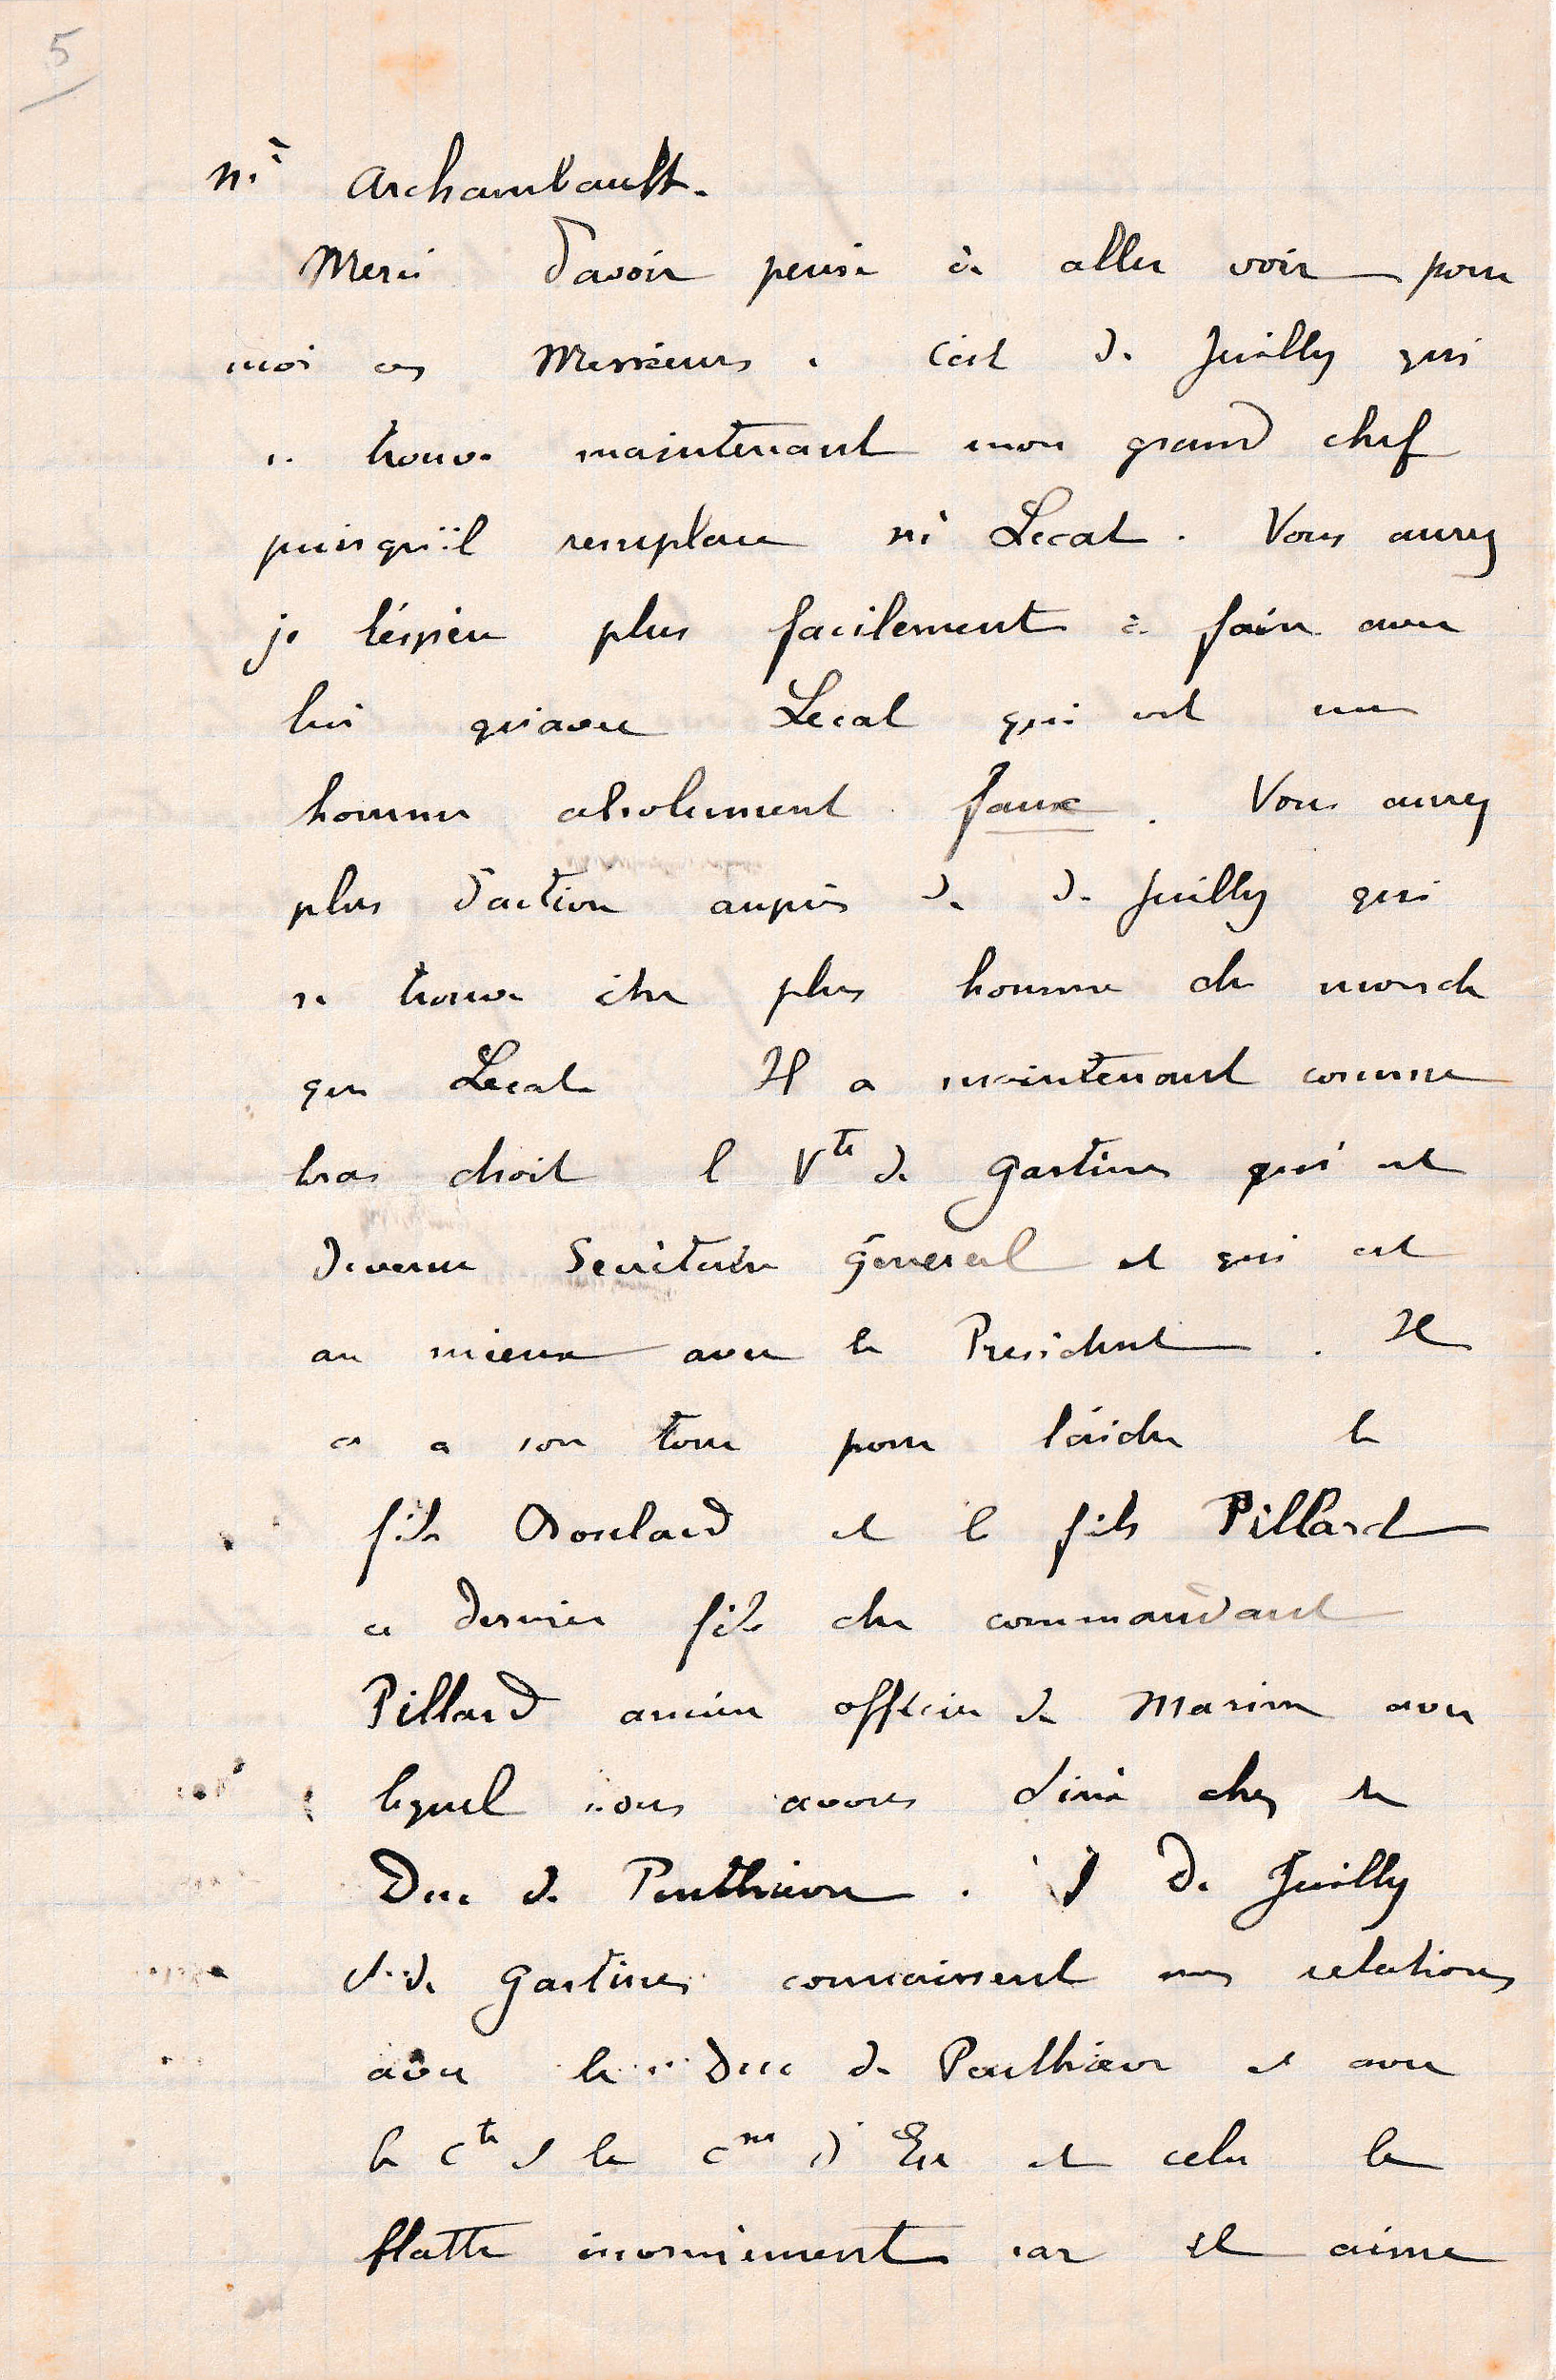 5
ni Archambault.
Merci d'avoir pensé à aller voir pour
moi ces Messieurs. C'est de Juilly qui
se trouve maintenant mon grand chef
puisqu'il remplace ni Lecat. Vous aurez
je l'espère plus facilement à faire avec
lui qu'avec Lecat qui est un
homme absolument faux. Vous aurez
plus d'action auprès de de Juilly qui
se trouve être plus homme du monde
que Lecat Il a maintenant comme
bras droit l Vte de Gastines qui est
devenu Secrétaire Général et qui est
au mieux avec le Président. Il
a a son tour pour l'aider le
fils et le fils Pillard
ce dernier fils du commandant
Pillard ancien officier de Marine avec
lequel nous avons diné chez le
Duc de Penthièvre. de Juilly
et de Gastines connaissent mes relations
avec le Duc de Penthièvre et avec
le Cte et la Csse d'Eu et cela le
flatte énormément car il aime